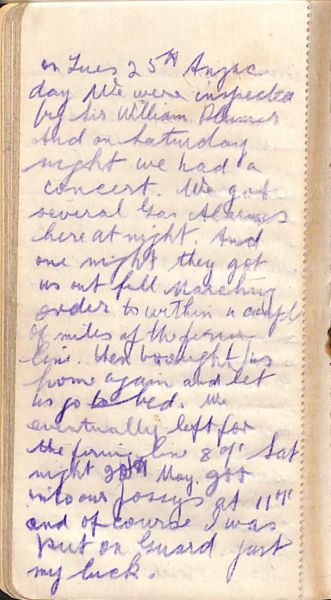 on Tues 25th Anzac
day We were inspected
by Sir William Plumer
And on Saturday
night we had a
concert. We got
several Gas Alarms
here at night. And
one night they got
us out full Marching
order to within a coupl
of miles of the firing
line. then brought us
home again and let
us go to bed. We
eventually left for
the firing line 8 Sat
night 20th May. got
into our possys at 11
and of course I was
put on Guard just
my luck.